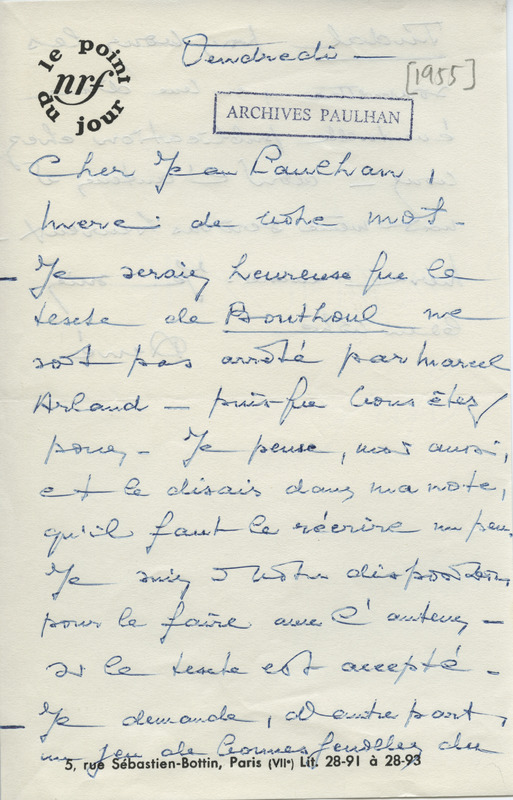 le point
nrf
du jour
Vendredi —
[1955]
ARCHIVES PAULHAN
Cher Jean Paulhan,
merci de votre mot —
Je serais heureuse que le
texte de Bouthoul ne
soit pas arrêté par Marcel
Arland — puisque vous êtes
pour — Je pense, moi aussi,
et le disais dans ma note,
qu'il faut le réécrire un peu.
Je suis à votre disposition
pour le faire avec l'auteur —
si le texte est accepté —
Je demande, d'autre part,
un jeu de bonnes feuilles du
5, rue Sébastien-Bottin, Paris (VIIe) Lit. 28-91 à 28-93